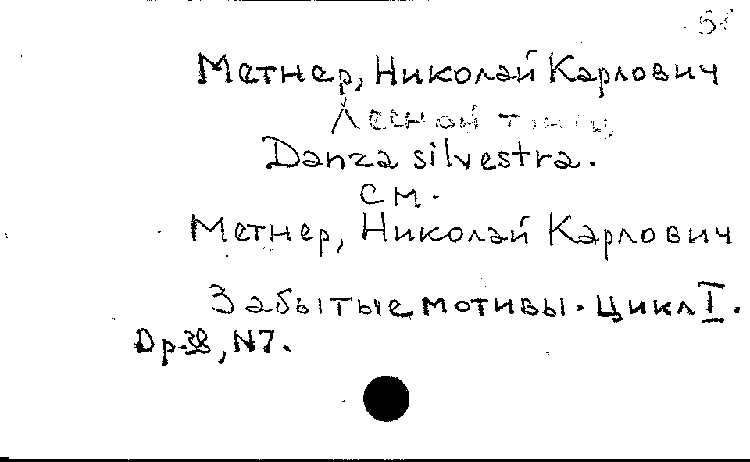 Метнер, Николай Карлович
Лесной танец
Danza silvestra.
см.
Метнер, Николай Карлович
Забытые мотивы. Цикл I.
Op. 38, N7.